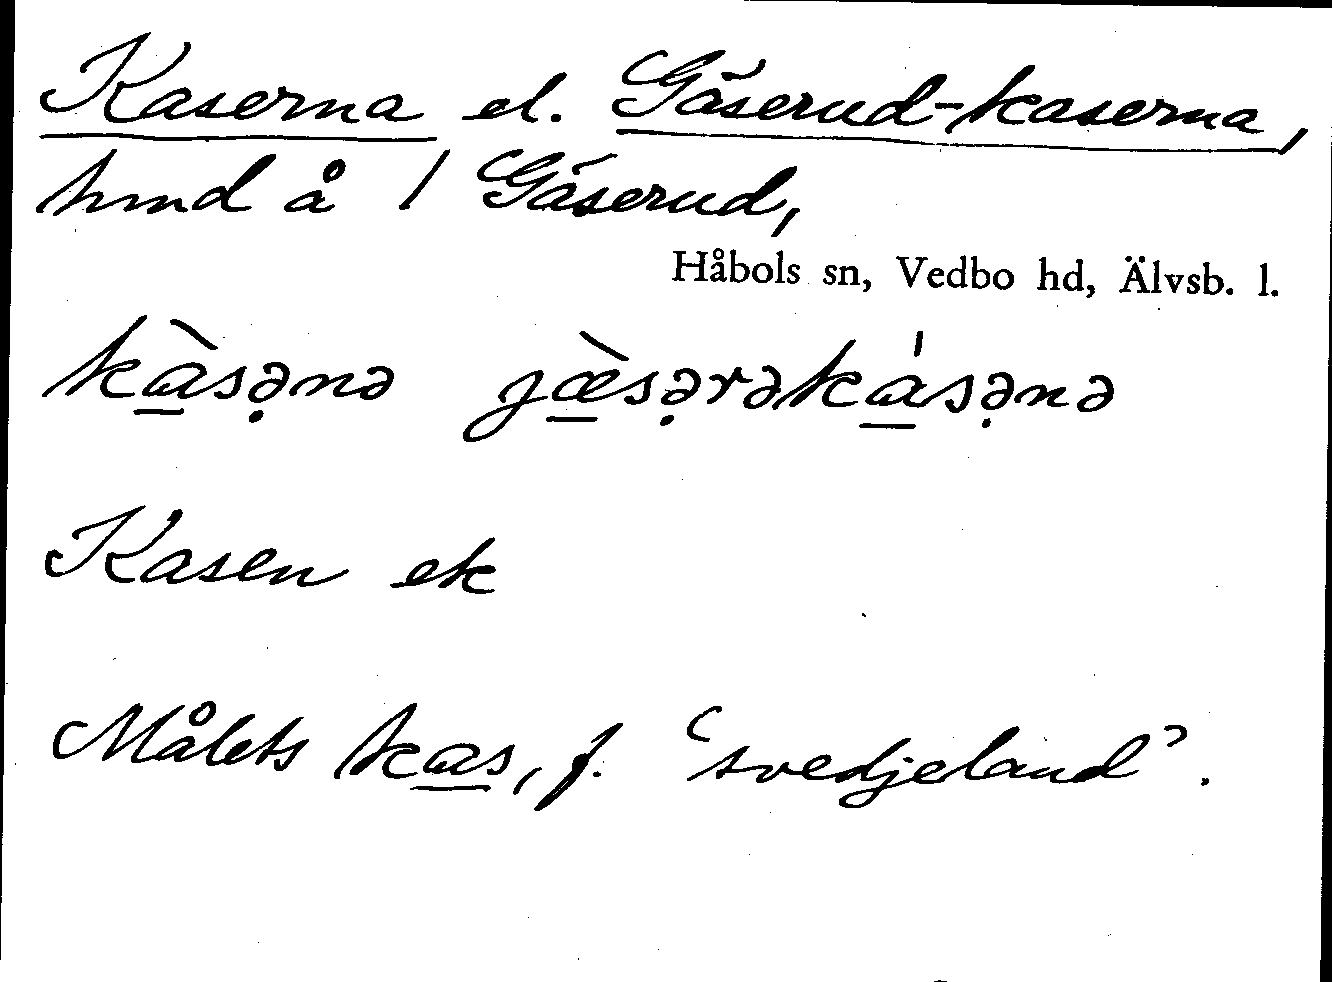 Kaserna el. Gäserud-kaserna,
hmd å 1 Gäserud,
Håbols sn, Vedbo hd, Älvsb. l.
kɑ̱̀sə̣nə gæ̱̀sə̣rəkɑ̱́sə̣nə
Kasen ek
Målets kɑ̱s, f. ‘svedjeland’.